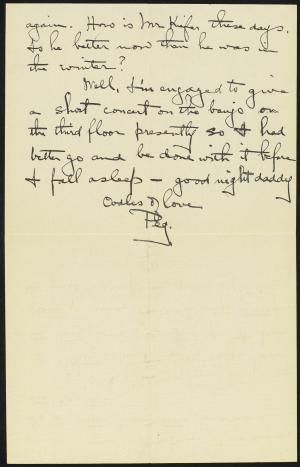 again. How is Mr Kifer these days.
Is he better now than he was in
the winter?
Well, I'm engaged to give
a short concert on the banjo on
the third floor presently so I had
better go and be done with it before
I fall asleep – good night daddy
Oodles of love
Peg.